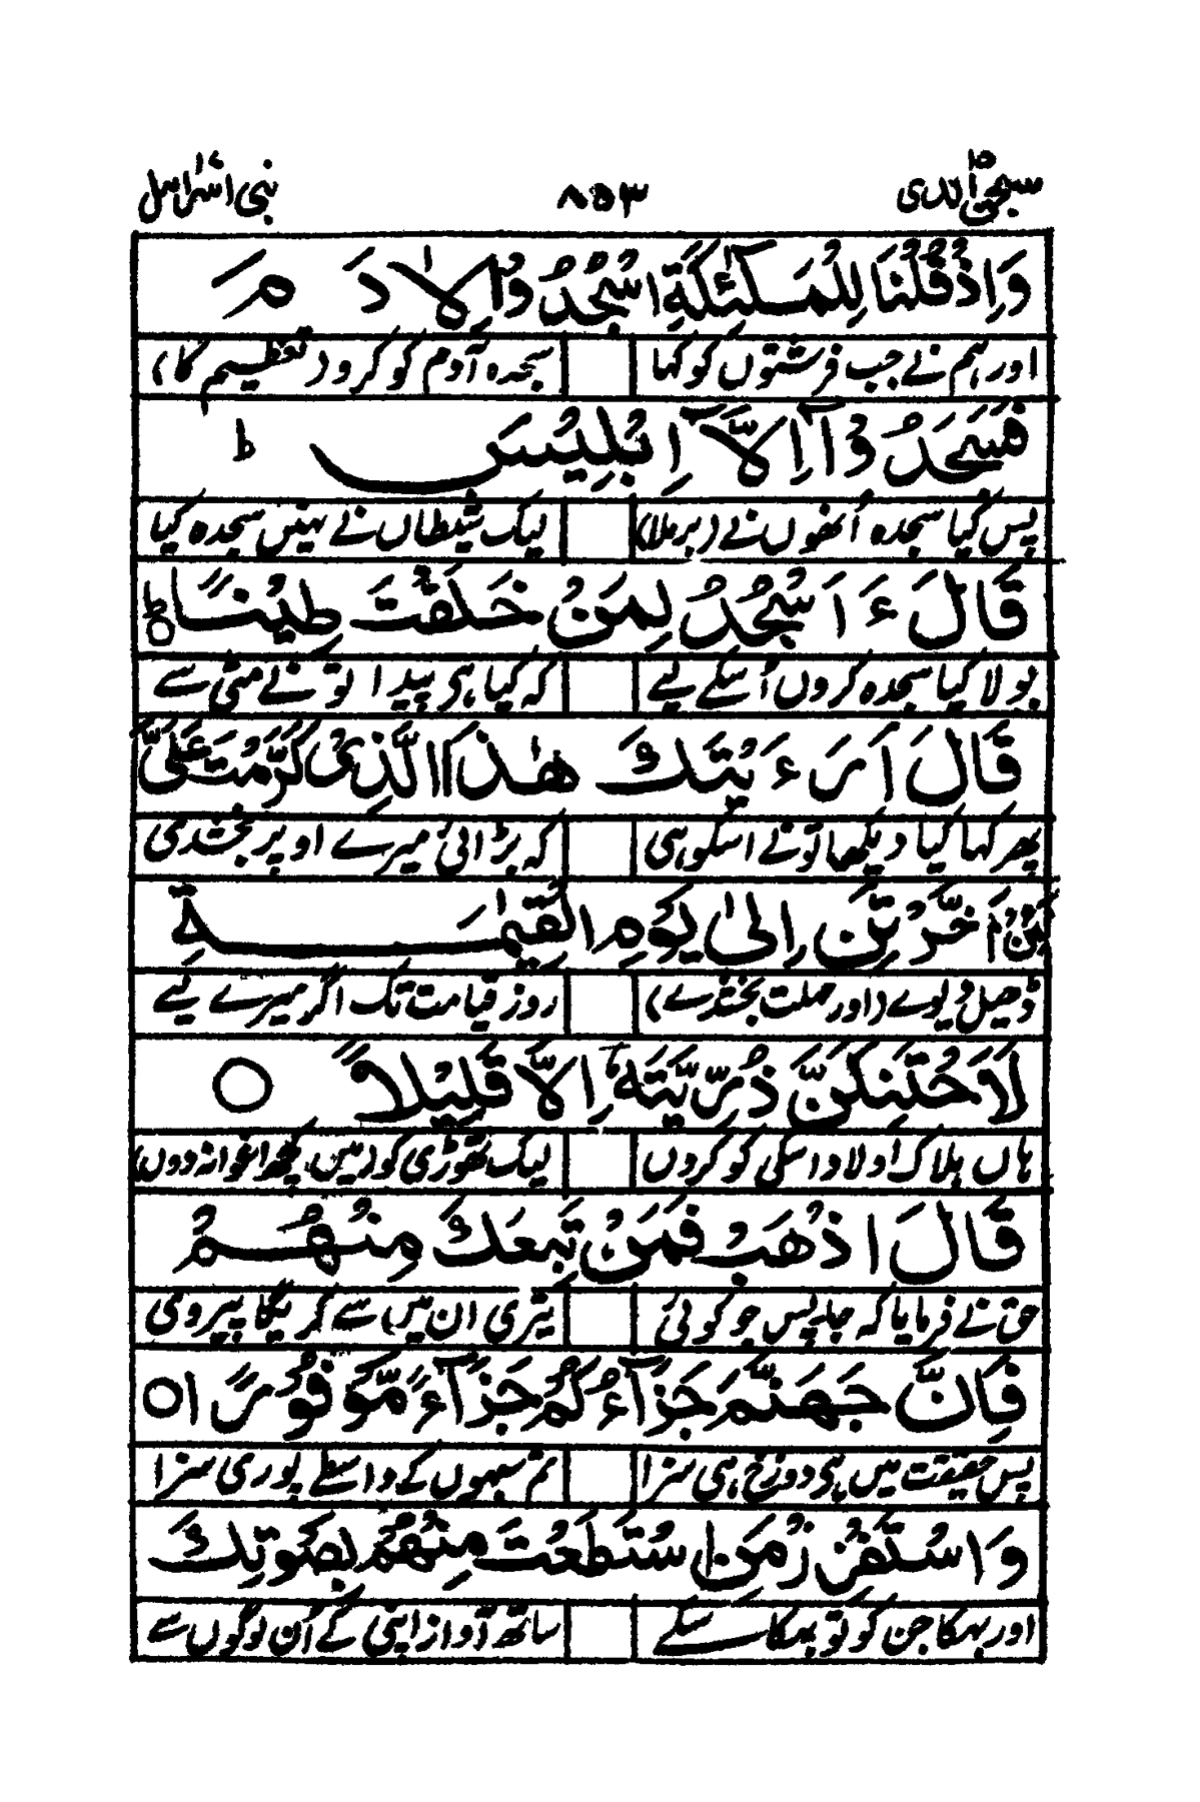 سبحن الذی ۱۵ ۸۵۳ بنی اسرائیل ۱۷
وَاِذْ قُلْنَا لِلْمَلٰٓئِكَةِ اسْجُدُوْا لِاٰدَمَ
اور ہم نے جب فرشتوں کو کہا سجدہ آدم کو کرو (تعظیم کا)
فَسَجَدُوْٓا اِلَّآ اِبْلِيْسَ ط
پس کیا سجدہ اُنھوں نے (برملا) لیک شیطاں نے نہیں سجدہ کیا
قَالَ ءَاَسْجُدُ لِمَنْ خَلَقْتَ طِيْنًا ۝ط
بولا کیا سجدہ کروں اُسکے لیے کہ کیا ہی پیدا تو نے مٹی سے
قَالَ اَرَءَيْتَكَ هٰذَا الَّذِىْ كَرَّمْتَ عَلَىَّ
پھر کہا کیا دیکھا تو نے اسکو ہی کہ بڑائی میرے اوپر بخشدی
لَئِنْ اَخَّرْتَنِ اِلٰى يَوْمِ الْقِيٰمَةِ
ڈھیل دیوے (اور مہلت بخشدے) روز قیامت تک اگر میرے لیے
لَاَحْتَنِكَنَّ ذُرِّيَّتَهٗٓ اِلَّا قَلِيْلًا ۝
ہاں ہلاک اولاد اسکی کو کروں لیک تھوڑی کو (میں کچھ اغوا نہ دوں)
قَالَ اذْهَبْ فَمَنْ تَبِعَكَ مِنْهُمْ
حق نے فرمایا کہ جا پس جو کوئی تیری ان میں سے کریگا پیروی
فَاِنَّ جَهَنَّمَ جَزَآؤُكُمْ جَزَآءً مَّوْفُوْرًا ۝
پس حقیقت میں ہی دوزخ ہی سزا تم سبھوں کے واسطے پوری سزا
وَاسْتَفْزِزْ مَنِ اسْتَطَعْتَ مِنْهُمْ بِصَوْتِكَ
اور بہکا جن کو تو بہکا سکے ساتھ آواز اپنی کے اُن لوگوں سے